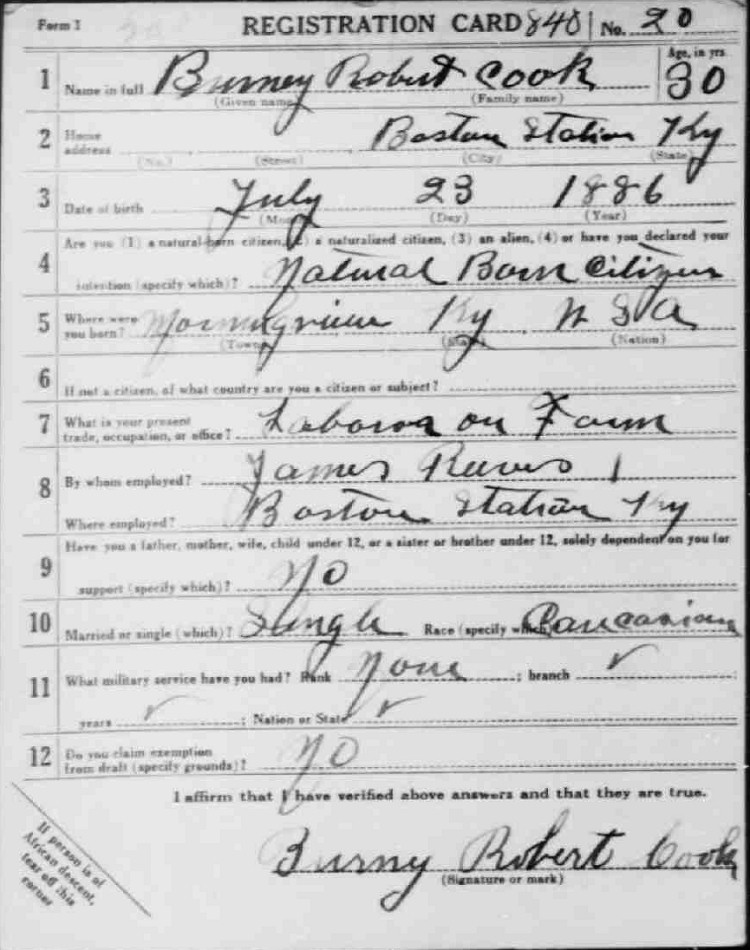 Form 1 REGISTRATION CARD 840 No. 20
1 Name in full Burney Robert Cook Age, in yrs 30
(Given name) (Family name)
2 Home address Boston Station Ky
(No.) (Street) (City) (State)
3 Date of birth July 23 1886
(Month) (Day) (Year)
Are you (1) a natural-born citizen, (2) a naturalized citizen, (3) an alien, (4) or have you declared your
4 intention (specify which)? Natural Born Citizen
5 Where were you born? Morningview Ky U S A
(Town) (State) (Nation)
6 If not a citizen, of what country are you a citizen or subject?
7 What is your present trade, occupation, or office? Laboror on Farm
8 By whom employed? James Reeves
Where employed? Boston Station Ky
Have you a father, mother, wife, child under 12, or a sister or brother under 12, solely dependent on you for
9 support (specify which)? No
10 Married or single (which)? Single Race (specify which) Caucasian
11 What military service have you had? Rank None ; branch ✓ ;
years ✓ ; Nation or State ✓
12 Do you claim exemption from draft (specify grounds)? No
I affirm that I have verified above answers and that they are true.
Burny Robert Cook
(Signature or mark)
If person is of
African descent,
tear off this
corner